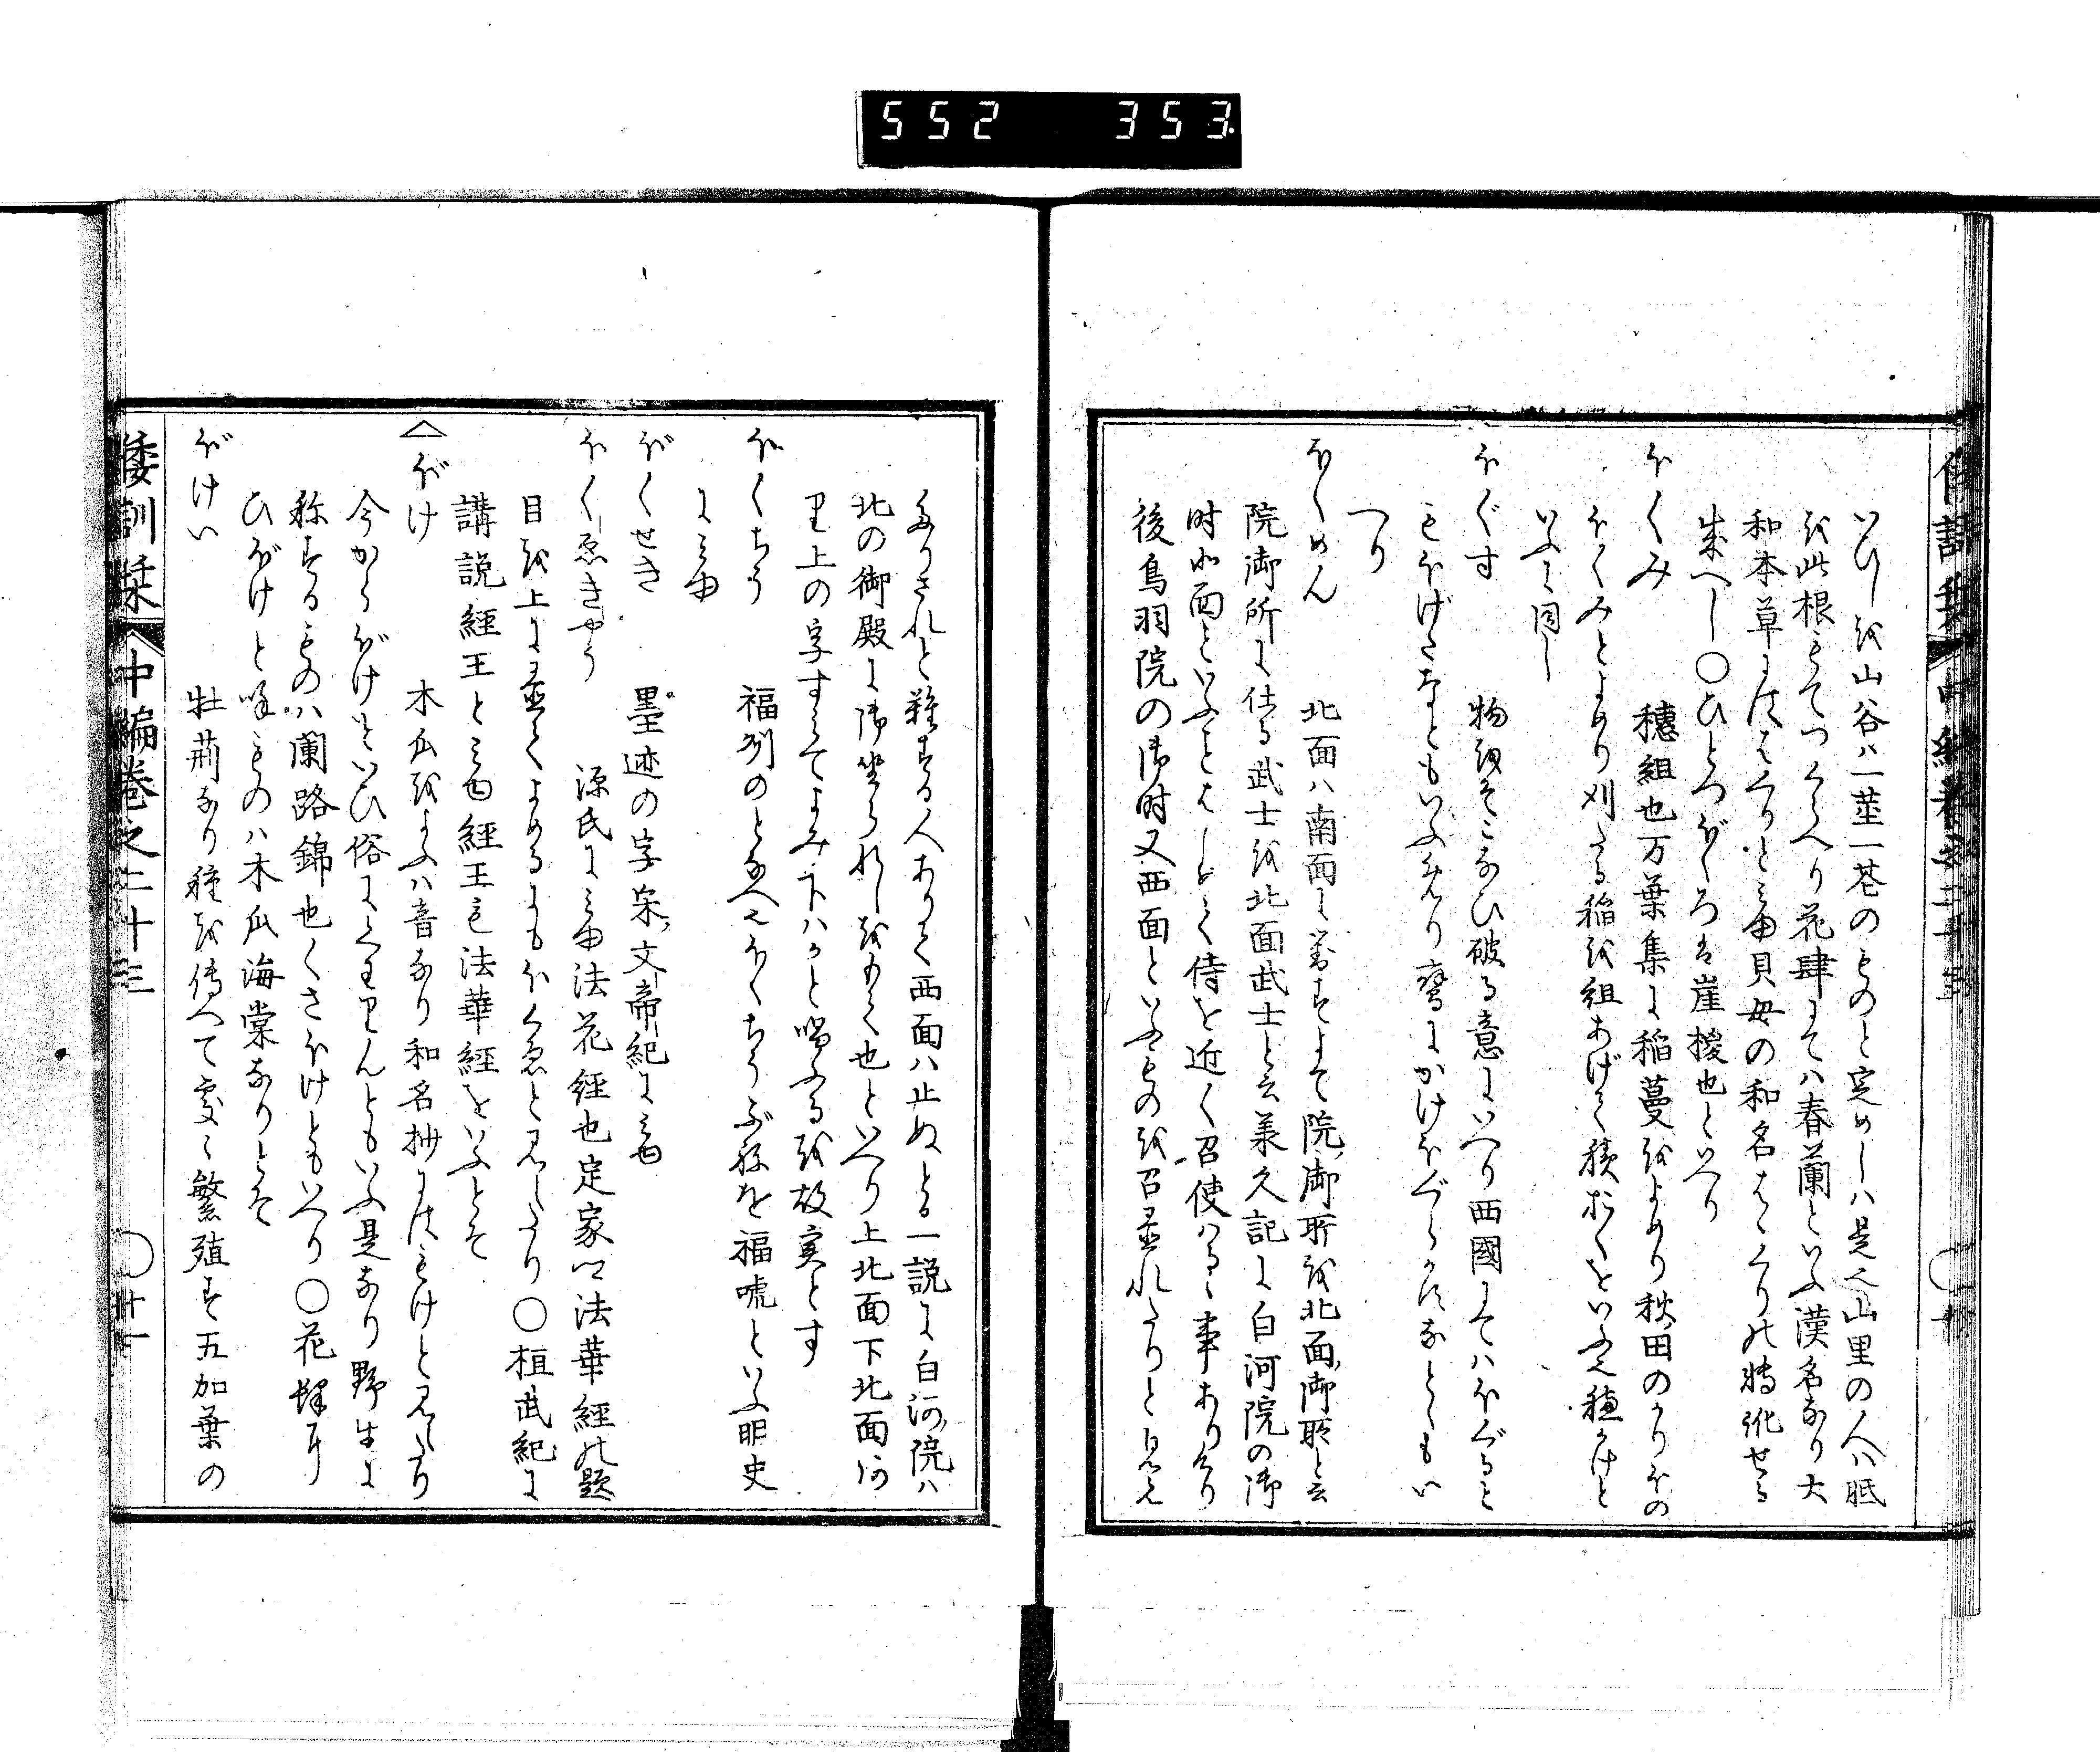 552 353
いひしを山谷ハ一莖一花のものと定めしハ是也山里の人ハ眠
を此根をもてつくへり花肆にてハ春蘭といふ漢名なり大
和本草にはほくりと見ゆ貝母の和名はゝくりの轉訛せる
成へし〇ひとつぼくろハ崖椶也といへり
ほくみ 穗組也万葉集に稲蔓をよめり秋田のかりほの
ほくみとよめり刈たる稲を組あげて積おくをいふ也穂かけと
いふに同し
ほぐす 物をそこなひ破る意にいへり西國にてハほぐると
もほげたなともいふめり鶯にかけほぐらかすなとゝもい
へり
ほくめん 北面ハ南面に對すよて院御所を北面御所と云
院御所に仕る武士を北面武士と云羕久記に白河院の御
時北面といふことはしめて侍を近く召使はるゝ事ありけり
後鳥羽院の御時又西面といふものを召置れたりと見え
たりされと難する人ありて西面ハ止ぬとる一説に白河院ハ
北の御殿に御坐られしをもて也といへり上北面下北面何
里上の字すみてよみ下ハかと唱ふるを故実とす
ほくちう 福州のとなへ也ほくちうぶねを福唬といふ明史
に見ゆ
ぼくせき 墨迹の字宋文帝紀に見ゆ
ほくゑきやう 源氏に見ゆ法花経也定家卿法華經の題
目を上に置てよめるにもほくゑと見えたり〇桓武紀に
講説經王と見ゆ經王も法華經をいふとそ
△ぼけ 木瓜をよふハ音なり和名抄にはもけと見えたり
今からぼけといひ俗にくわりんともいふ是なり野生に
称するものハ蘭路錦也くさぼけともいへり〇花蝶形
ひぼけと呼ものハ木瓜海棠なりとそ
ぼけい 牡荊なり種を傳へて處々繁殖す五加葉の
倭訓栞 中編巻之二十三 〇廿一